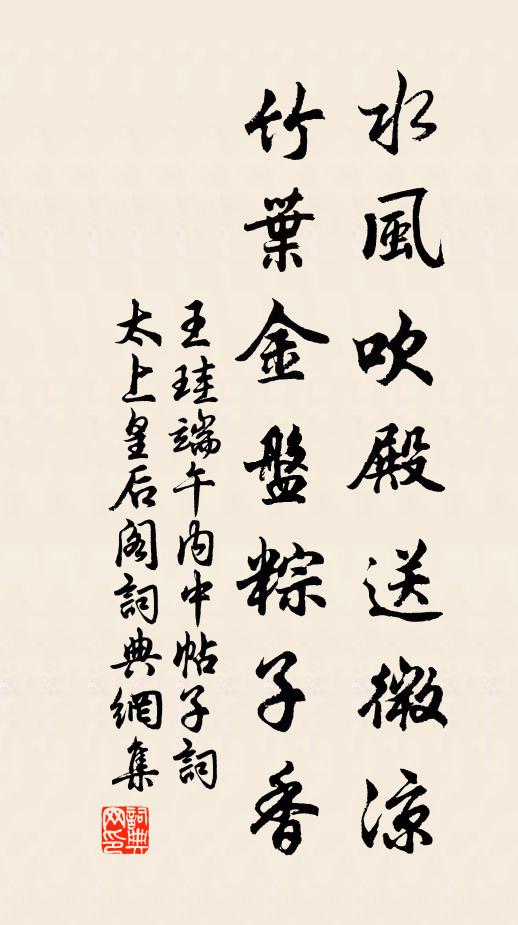 水風吹殿送微涼
竹葉金盤粽子香
王珪端午内中帖子詞
太上皇后阁詞典網集
詞典
网印